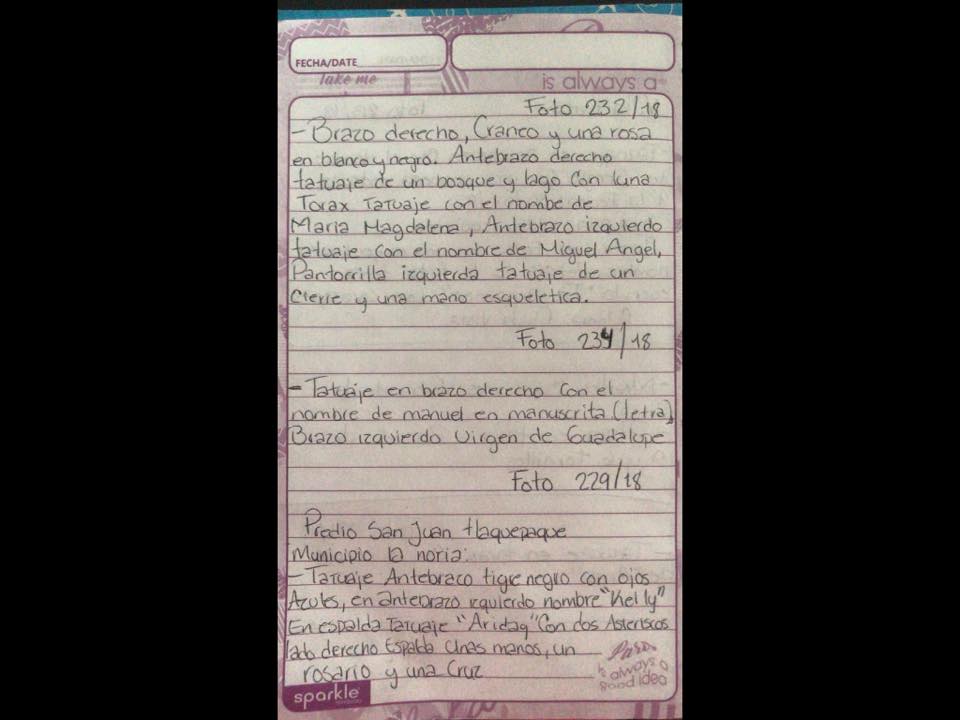 FECHA/DATE
Take me
is always a
Foto 232/18
- Brazo derecho, Craneo y una rosa
en blanco y negro. Antebrazo derecho
tatuaje de un bosque y lago Con luna
Torax Tatuaje con el nombe de
Maria Magdalena, Antebrazo izquierdo
tatuaje con el nombre de Miguel Angel,
Pantorrilla izquierda tatuaje de un
Cierre y una mano esqueletica.
Foto 234/18
- Tatuaje en brazo derecho Con el
nombre de manuel en manuscrita (letra),
Brazo izquierdo Virgen de Guadalupe
Foto 229/18
Predio San Juan tlaquepaque
Municipio la noria:
- Tatuaje Antebraco tigre negro con ojos
Azules, en antebrazo izquierdo nombre "Kelly"
En espalda Tatuaje "Aridag" Con dos Asteriscos
lado derecho Espalda Unas manos, un
rosario y una Cruz
Paris
is always a
good idea
sparkle